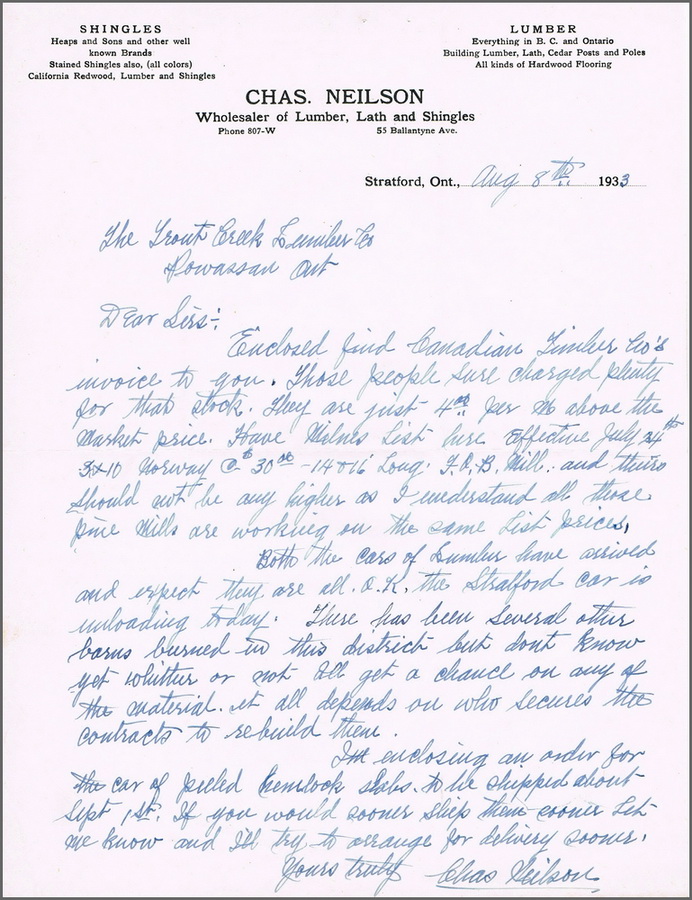 SHINGLES
Heaps and Sons and other well
known Brands
Stained Shingles also, (all colors)
California Redwood, Lumber and Shingles
LUMBER
Everything in B. C. and Ontario
Building Lumber, Lath, Cedar Posts and Poles
All kinds of Hardwood Flooring
CHAS. NEILSON
Wholesaler of Lumber, Lath and Shingles
Phone 807-W 55 Ballantyne Ave.
Stratford, Ont., Aug 8th 1933
The Trout Creek Lumber Co
Powassan Ont
Dear Sirs:
Enclosed find Canadian Timber Co's
invoice to you. Those people sure charged plenty
for that stock. They are just 4.00 per M above the
market price. Have Milnes List here Effective July 24th
3x10 Norway @ $30.00 - 14 & 16 Long. F.O.B. Mill. and theirs
should not be any higher as I understand all those
pine Mills are working on the same List prices,
Both the cars of Lumber have arrived
and expect they are all O.K. the Stratford car is
unloading today. There has been several other
barns burned in this district but dont know
yet whither or not Ill get a chance on any of
the material. it all depends on who secures the
contracts to rebuild them.
Im enclosing an order for
the car of peeled hemlock slabs. to be shipped about
Sept 1st. If you would sooner ship them sooner Let
me know and I'll try to arrange for delivery sooner.
Yours truly Chas Neilson